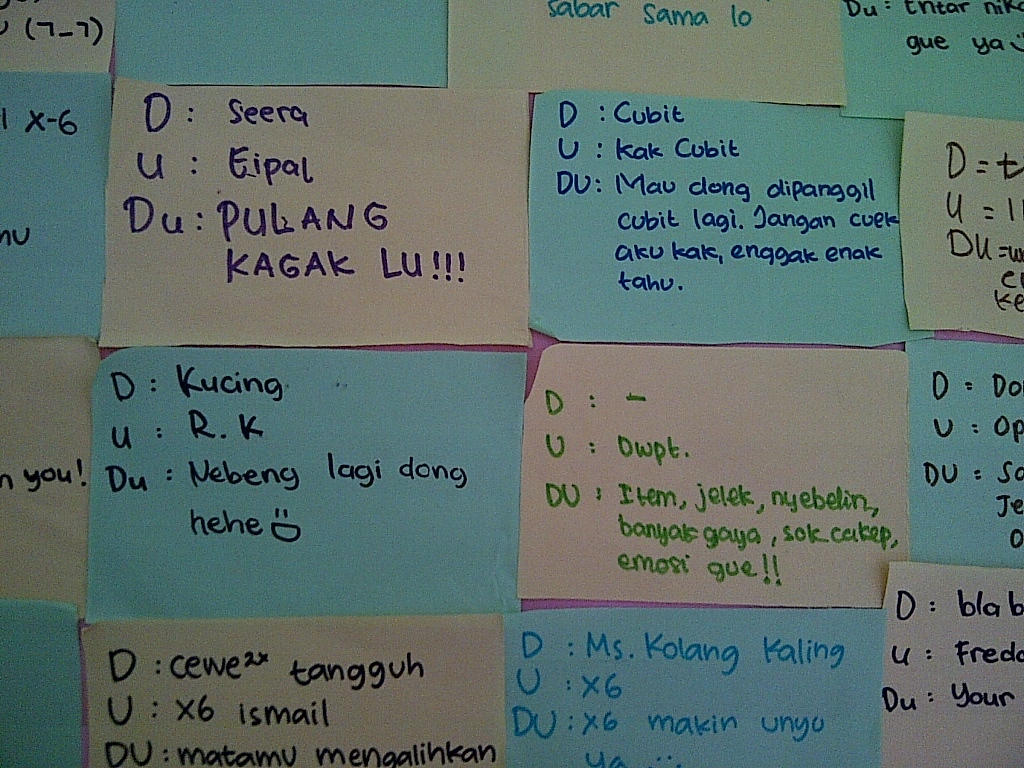 (7-7)
sabar sama lo
Du: Entar
gue ya
X-6
D : Seera
U : Eipal
Du : PULANG
KAGAK LU!!!
D : Cubit
U : Kak Cubit
DU: Mau dong dipanggil
cubit lagi. Jangan cuek
aku kak, enggak enak
tahu.
D =
U =
DU =
D : Kucing
U : R. K
Du : Nebeng lagi dong
hehe
D : -
U : Owpt.
DU : Item, jelek, nyebelin,
banyak gaya, sok cakep,
emosi gue!!
D :
U :
DU =
you!
D : cewe²ˣ tangguh
U : X6 ismail
DU : matamu mengalihkan
D : Ms. Kolang Kaling
U : X6
DU : X6 makin unyu
ya
D : bla
U :
Du : Your